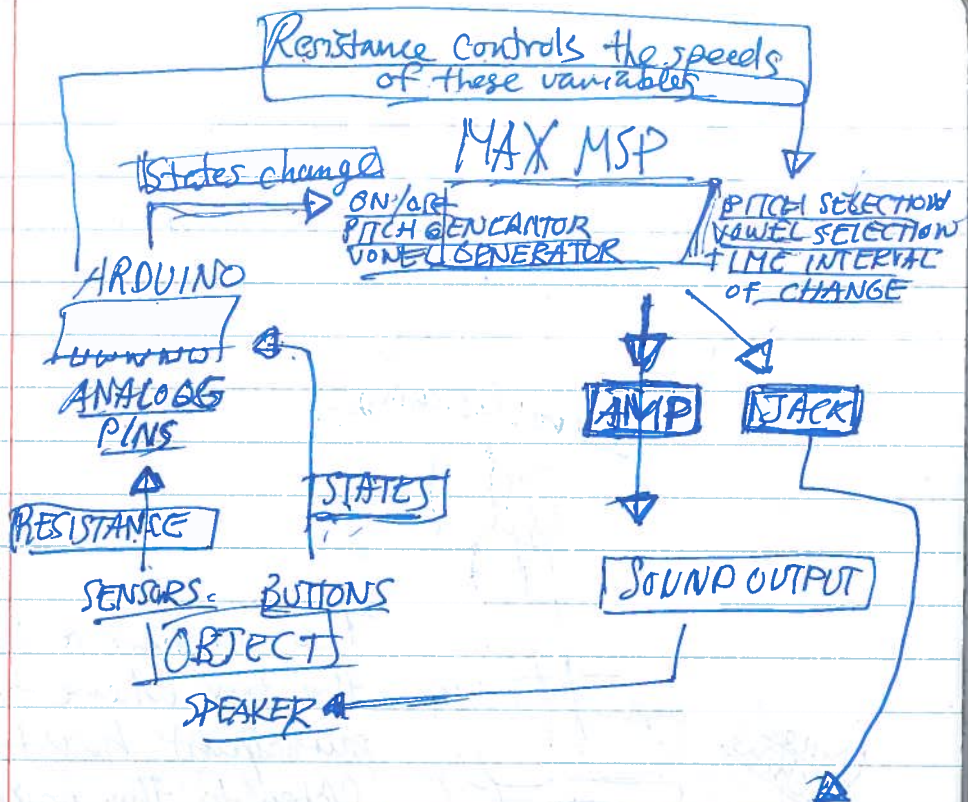 Resistance controls the speeds
of these variables
MAX MSP
States change
ON/OFF
PITCH GENERATOR
VOWEL GENERATOR
PITCH SELECTION
VOWEL SELECTION
TIME INTERVAL
OF CHANGE
ARDUINO
ANALOGG
PINS
AMP
JACK
STATES
RESISTANCE
SENSORS. BUTTONS
SOUND OUTPUT
OBJECT
SPEAKER